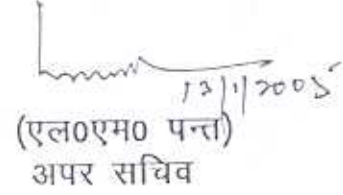 13/1/2005
(एल0एम0 पन्त)
अपर सचिव